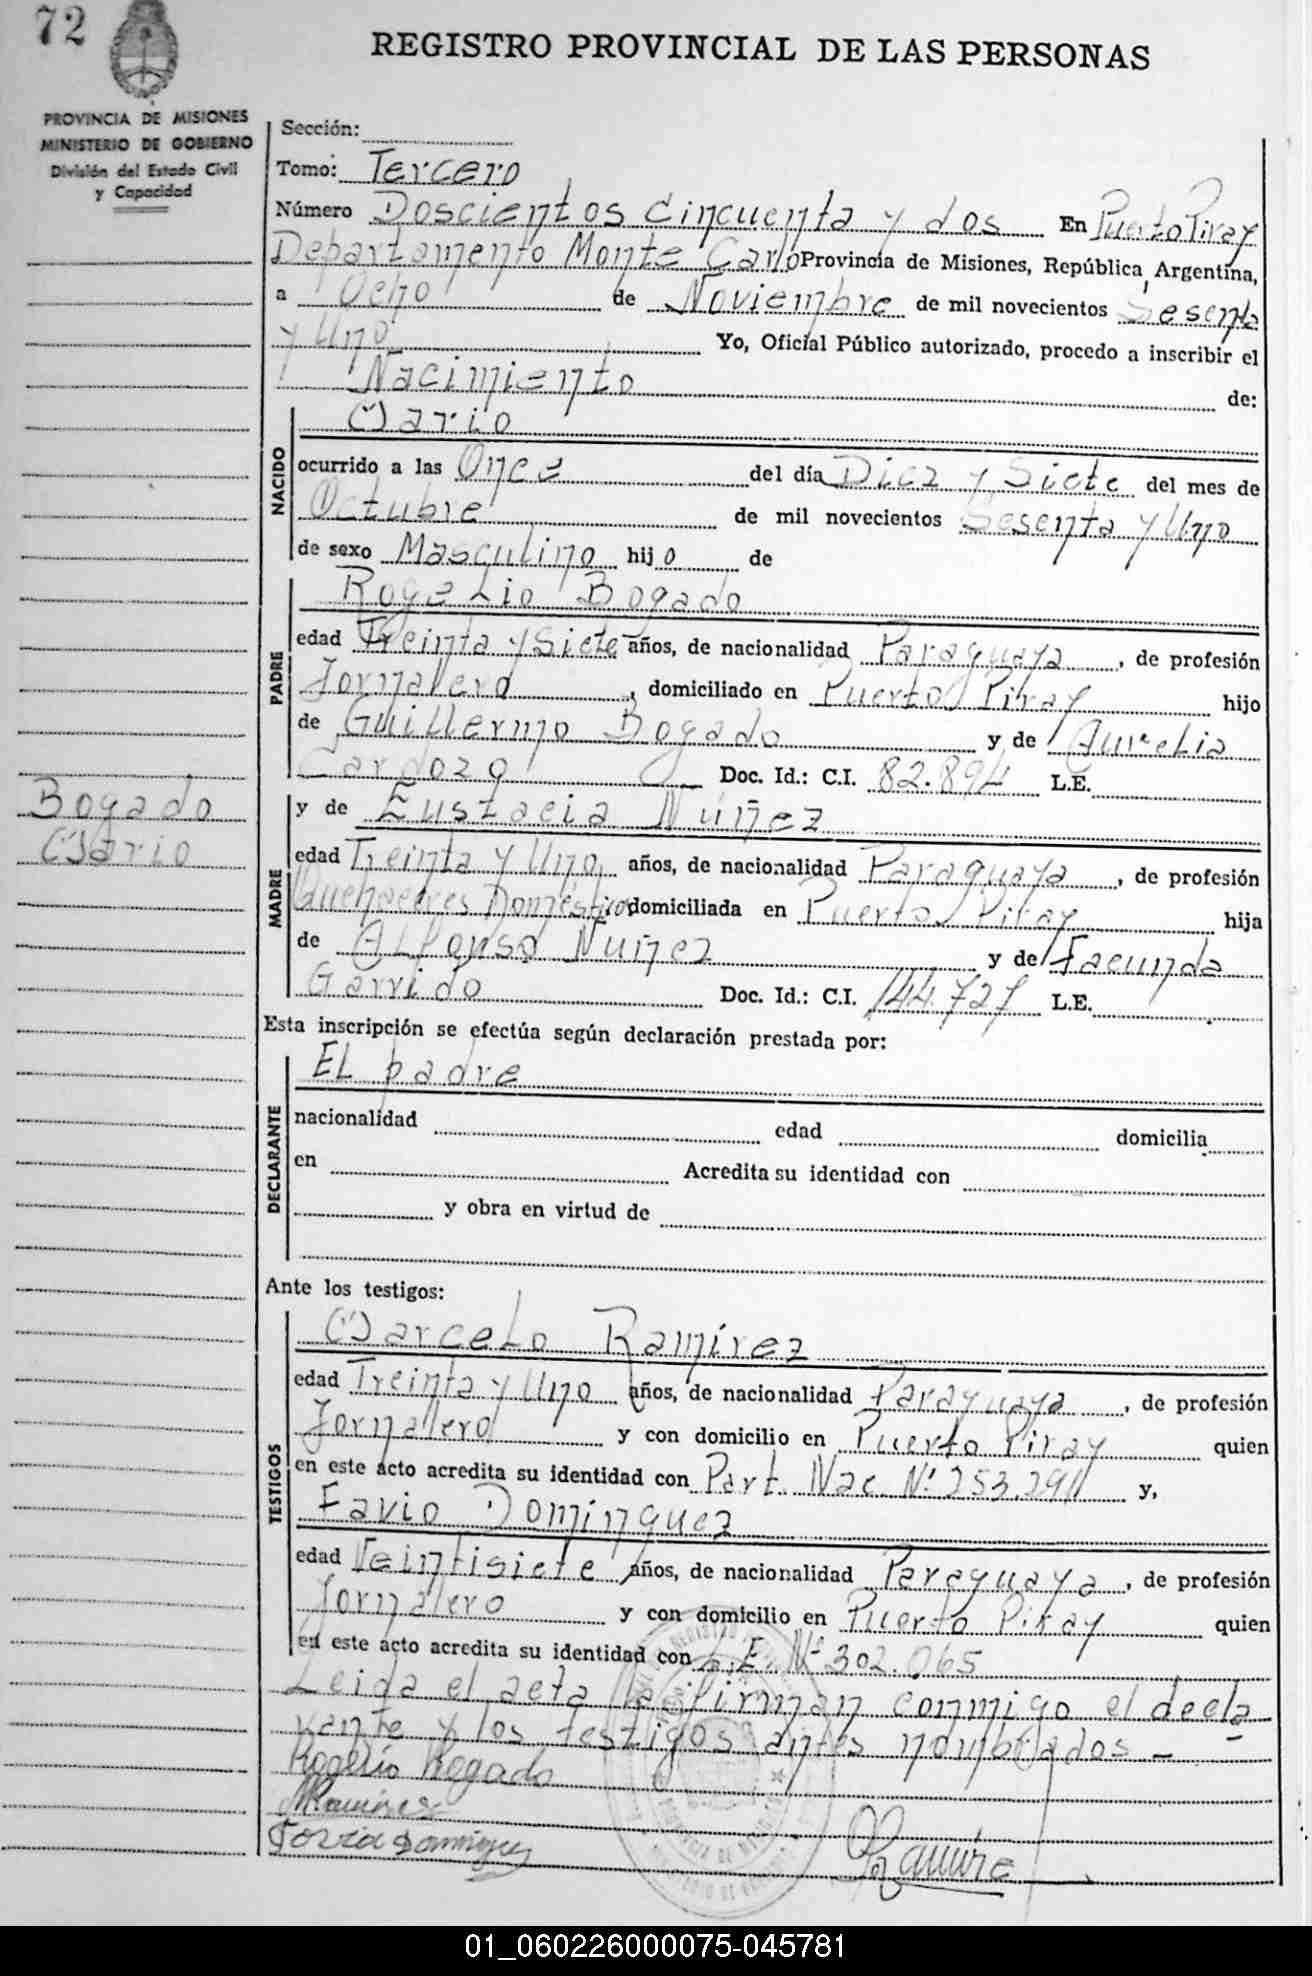 72
REGISTRO PROVINCIAL DE LAS PERSONAS
PROVINCIA DE MISIONES
MINISTERIO DE GOBIERNO
División del Estado Civil
y Capacidad
Sección:
Tomo: Tercero
Número Doscientos Cincuenta y dos En Puerto Piray
Departamento Monte Carlo Provincia de Misiones, República Argentina,
a Ocho de Noviembre de mil novecientos Sesenta
y Uno Yo, Oficial Público autorizado, procedo a inscribir el
Nacimiento de:
NACIDO
Mario
ocurrido a las Once del día Diez y Siete del mes de
Octubre de mil novecientos Sesenta y Uno
de sexo Masculino hijo de
PADRE
Rogelio Bogado
edad Treinta y Siete años, de nacionalidad Paraguaya, de profesión
Jornalero, domiciliado en Puerto Piray hijo
de Guillermo Bogado y de Aurelia
Cardozo Doc. Id.: C.I. 82.894 L.E.
Bogado
Mario
MADRE
y de Eustacia Núñez
edad Treinta y Uno años, de nacionalidad Paraguaya, de profesión
Quehaceres Domésticos domiciliada en Puerto Piray hija
de Alfonso Nuñez y de Facunda
Garrido Doc. Id.: C.I. 144.727 L.E.
Esta inscripción se efectúa según declaración prestada por:
DECLARANTE
El padre
nacionalidad edad domicilia
en Acredita su identidad con
y obra en virtud de
Ante los testigos:
TESTIGOS
Marcelo Ramírez
edad Treinta y Uno años, de nacionalidad Paraguaya, de profesión
Jornalero y con domicilio en Puerto Piray quien
en este acto acredita su identidad con Part. Nac. Nº 253.291 y,
Favio Domínguez
edad Veintisiete años, de nacionalidad Paraguaya, de profesión
Jornalero y con domicilio en Puerto Piray quien
en este acto acredita su identidad con L.E. Nº 302.065
Leida el acta la firman conmigo el decla
rante y los testigos antes nombrados -
Rogelio Bogado
MRamirez
01_060226000075-045781